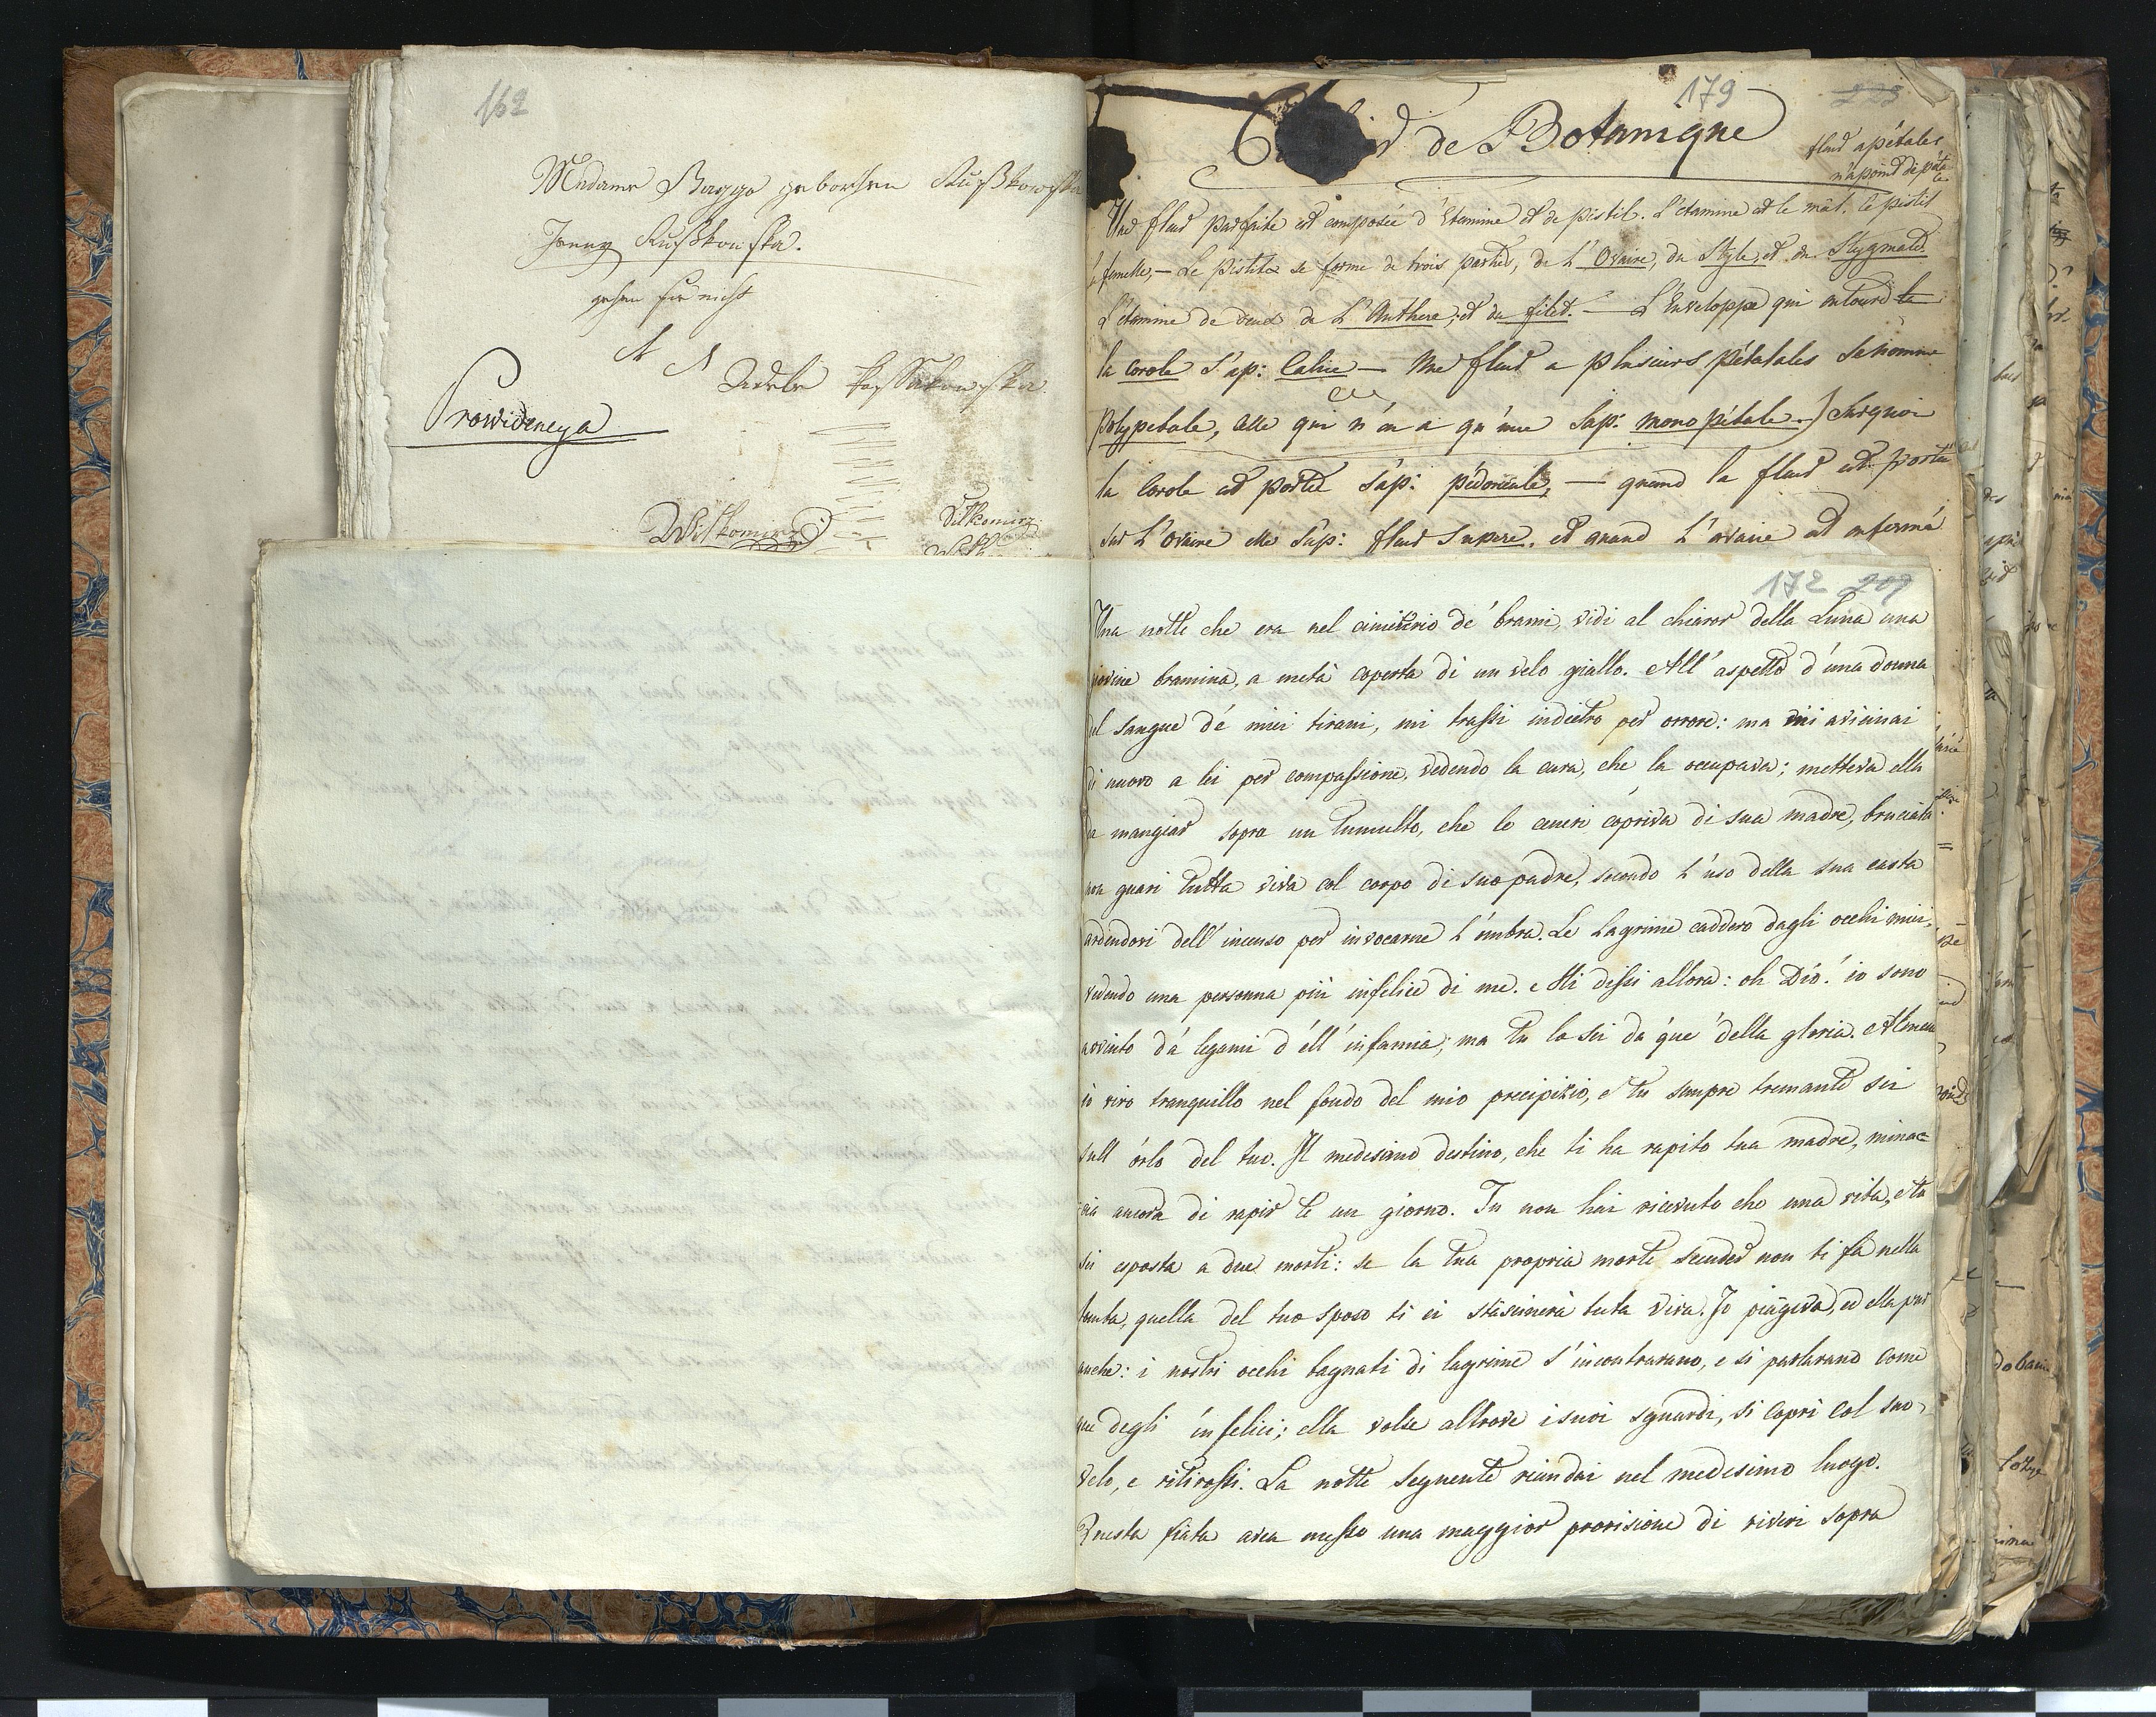 162
Madame Bagge geborhen Rußkowska
Jenny Rußkowska.
gehen sie nicht
A A
Adele
Prowidencya
DWitkomirz
Vilkomirz
179
de Botanique
fleur apétales
n'a point de péta
les
Une fleur parfaite est composée d'Etamine et de pistil. L'étamine est le mâl. le pistil
femelle, — Le Pistile se forme de trois parties, de L'Ovaire, du Style, et du Stygmate.
L'étamine de deux de L'Anthere, et du filet. — L'Enveloppe qui entoure la
la Corole S'ap: Calice — Une fleur a plusieurs pétatales Se nomme
Polypetale, Celle qui n'en a qu'une Sap: mono pétale.) Surquoi
la Corole est portée S'ap: pédoncule, — quand la fleur est portée
sur L'Ovaire elle S'ap: fleur Supere, et quand L'ovaire est enfermé
172 209
Una notte che era nel cimiterio de' brami, vidi al chiaror della Luna una
giovine bramina, a metà coperta di un velo giallo. All' aspetto d'una donna
del sangue de' miei tirani, mi trassi indietro per orrore: ma mi avicinai
di nuovo a lei per compassione, vedendo la cura, che la occupava; metteva ella
da mangiar sopra un tumulto, che le ceneri copriva di sua madre, bruciata
non guari tutta viva col corpo di suo padre, secondo l'uso della sua casta
ardendovi dell' incenso per invocarne l'umbra. Le lagrime caddero dagli occhi miei,
vedendo una personna più infelice di me. Mi dissi allora: oh Dio! io sono
avvinto dà legami d'ell' infamia; ma tu lo sei da què della gloria. Almeno
io vivo tranquillo nel fondo del mio precipizio, e tu sempre tremante sei
sull' orlo del tuo. Il medesimo destino, che ti ha rapito tua madre, minac=
cia ancora di rapir te un giorno. Tu non hai ricevuto che una vita, e tu
sei esposta a due morti: se la tua propria morte scender non ti fà nella
tomba, quella del tuo sposo ti ci stascinerà tuta viva. Io piangeva, ed ella pur
anche: i nostri occhi bagnati di lagrime s'incontravano, e si parlarano come
que' degli infelici; ella volse altrove i suoi sguardi, si coprì col suo
velo, e ritirossi. La notte seguente riandai nel medesimo luogo.
Questa fiata avea messo una maggior provisione di viveri sopra